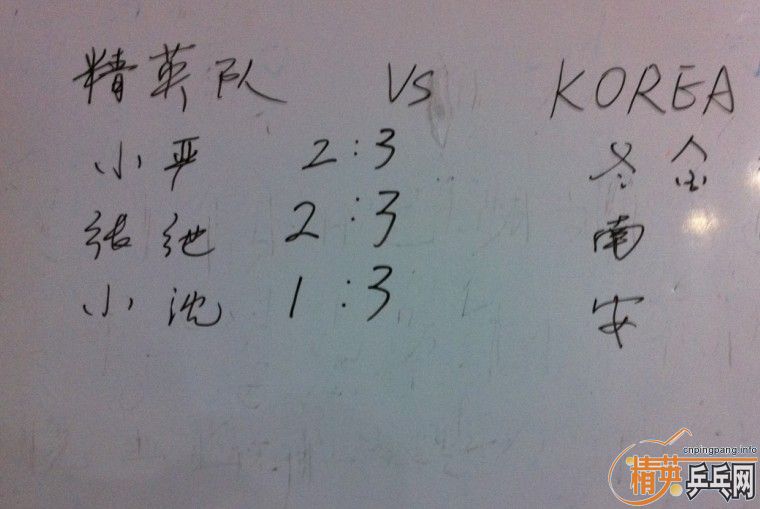 精英队 VS KOREA
小严 2:3 金
张 2:3 南
小沈 1:3 安
cnpingpang.info
精英乒乓网